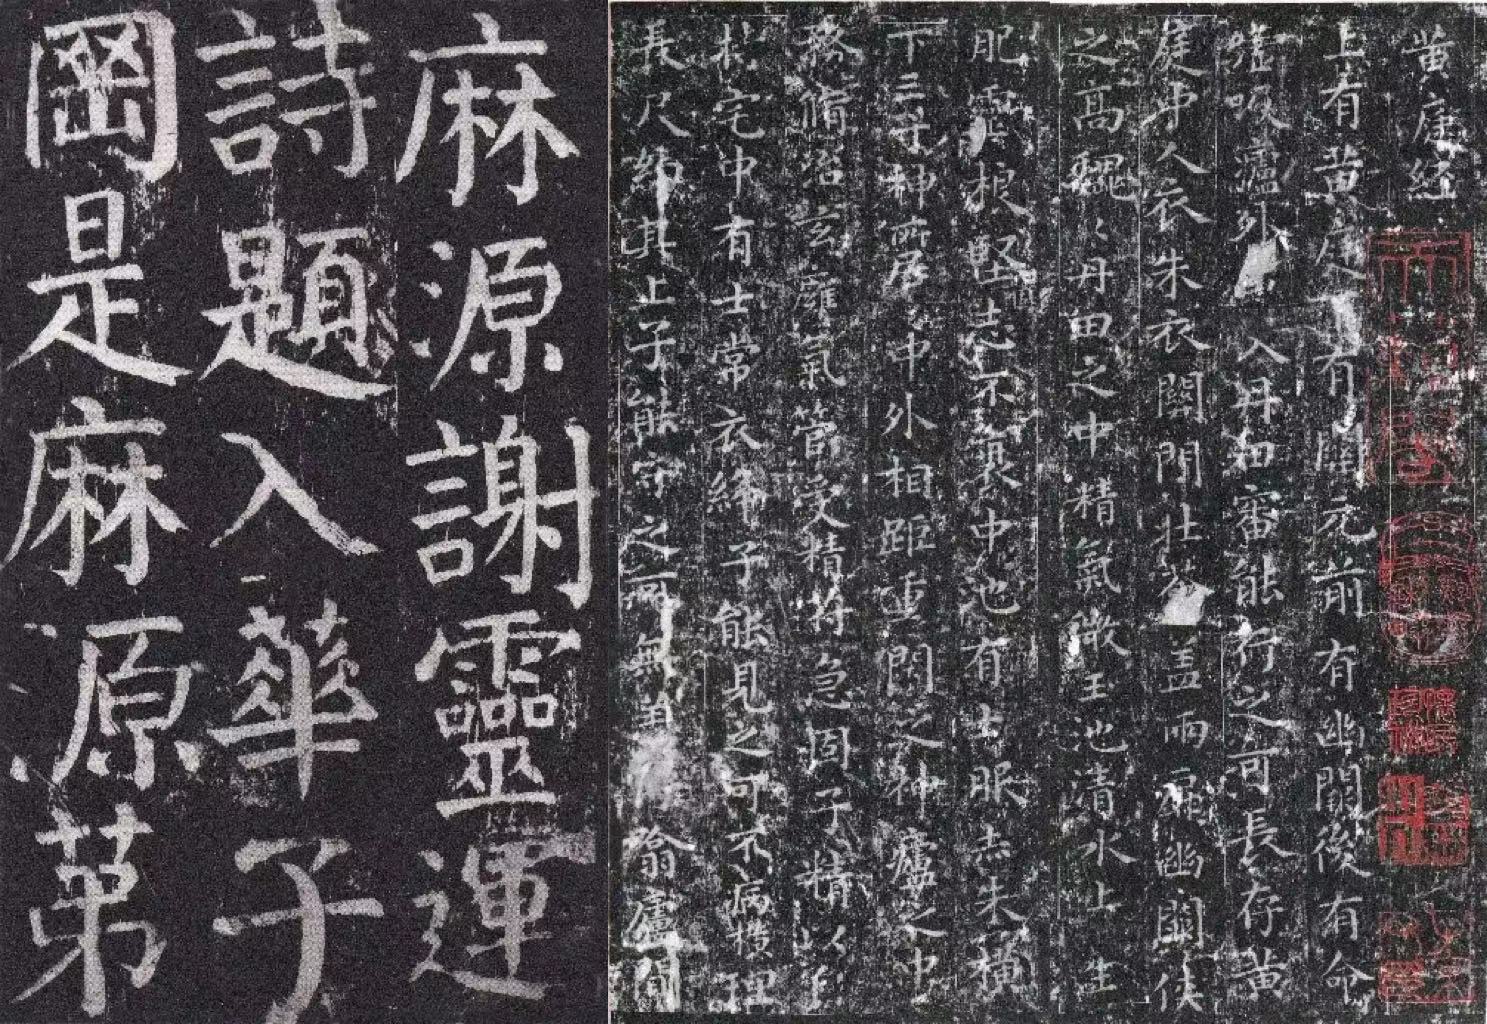 麻源謝靈運
詩題入華子
岡是麻源第
黄庭経
上有黄庭下有關元前有幽闕後有命
噓吸廬外入丹田審能行之可長存黄
庭中人衣朱衣關門壯蘥蓋兩扉幽闕侠
之高巍々丹田之中精氣微玉池清水上生
肥靈根堅志不衰中池有士服赤朱横
下三寸神所居中外相距重閇之神廬之中
務脩治玄廱氣管受精符急固子精以自
持宅中有士常衣絳子能見之可不病横理
長尺約其上子能守之可無恙噏廬閒